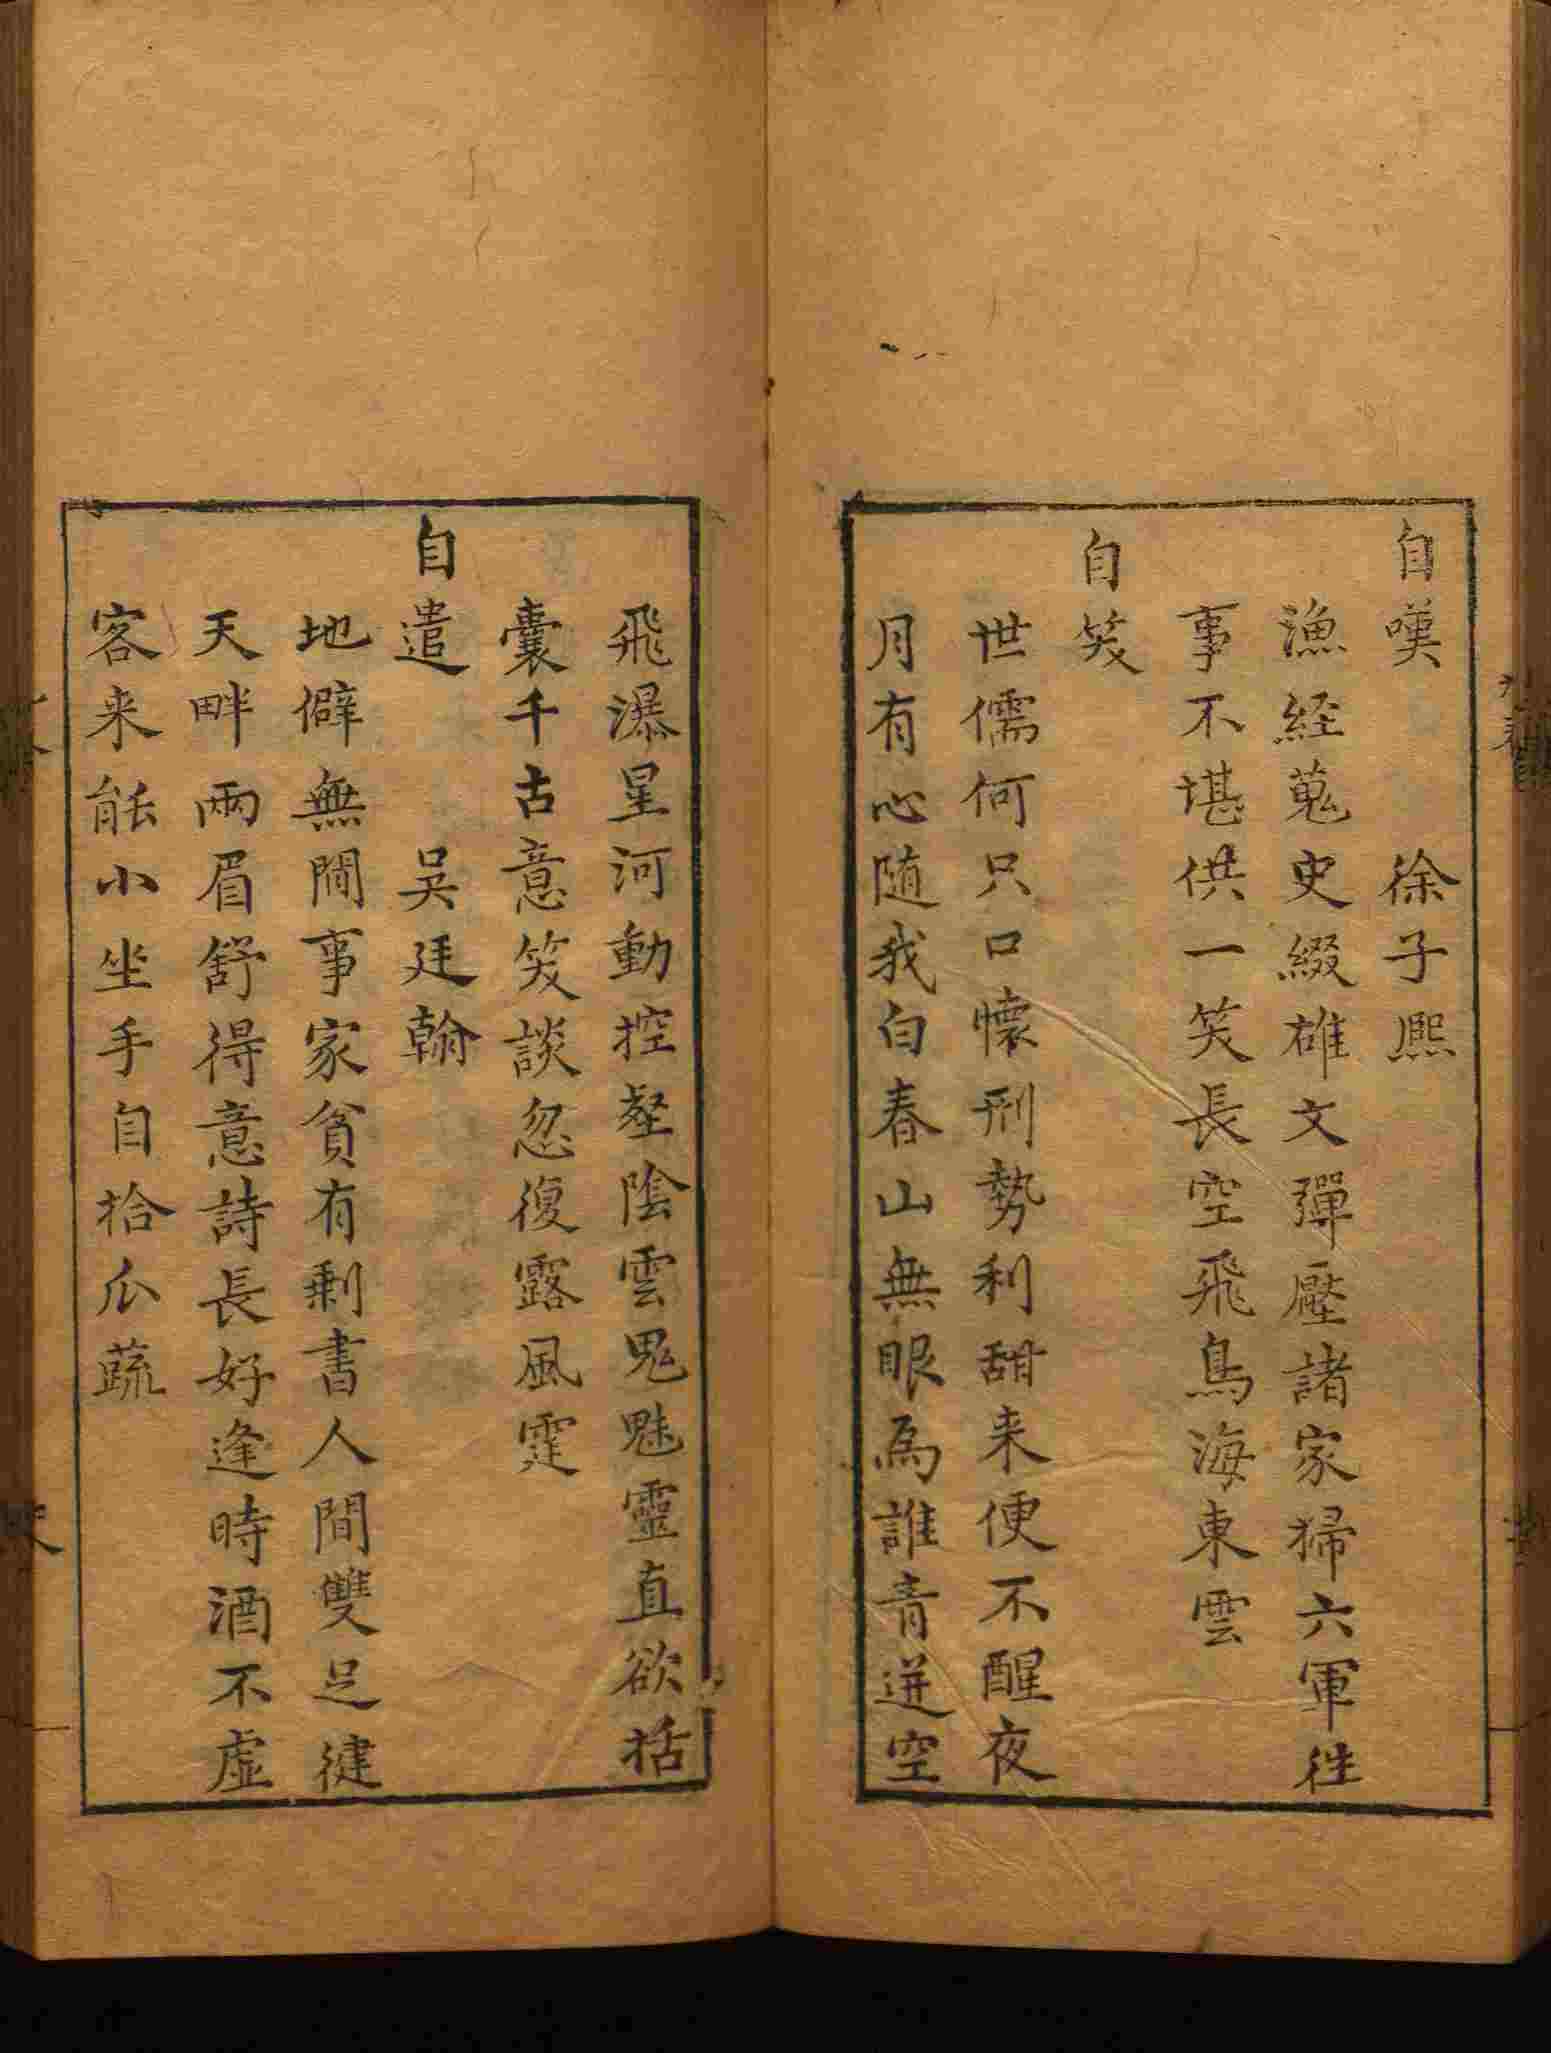 自嘆 徐子熈
漁経蒐史綴雄文彈壓諸家掃六軍徃
事不堪供一笑長空飛鳥海東雲
自笑
世儒何只口懐刑勢利甜来便不醒夜
月有心随我白春山無眼為誰青迸空
飛瀑星河動控壑陰雲鬼魅靈直欲括
囊千古意笑談忽復露風霆
自遣 吳廷翰
地僻無閒事家貧有剩書人間雙足健
天畔兩眉舒得意詩長好逢時酒不虚
客来能小坐手自拾瓜蔬